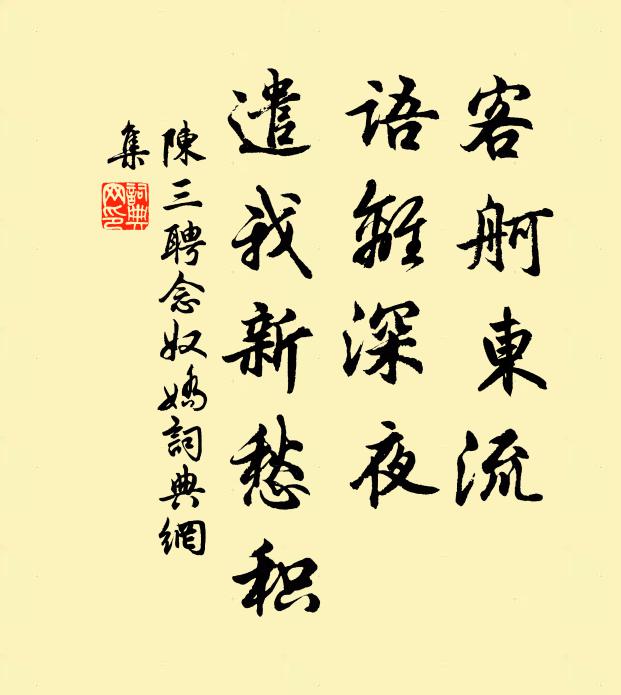 客舸東流
語離深夜
遣我新愁积
陳三聘念奴嬌詞典網
集
詞典網印